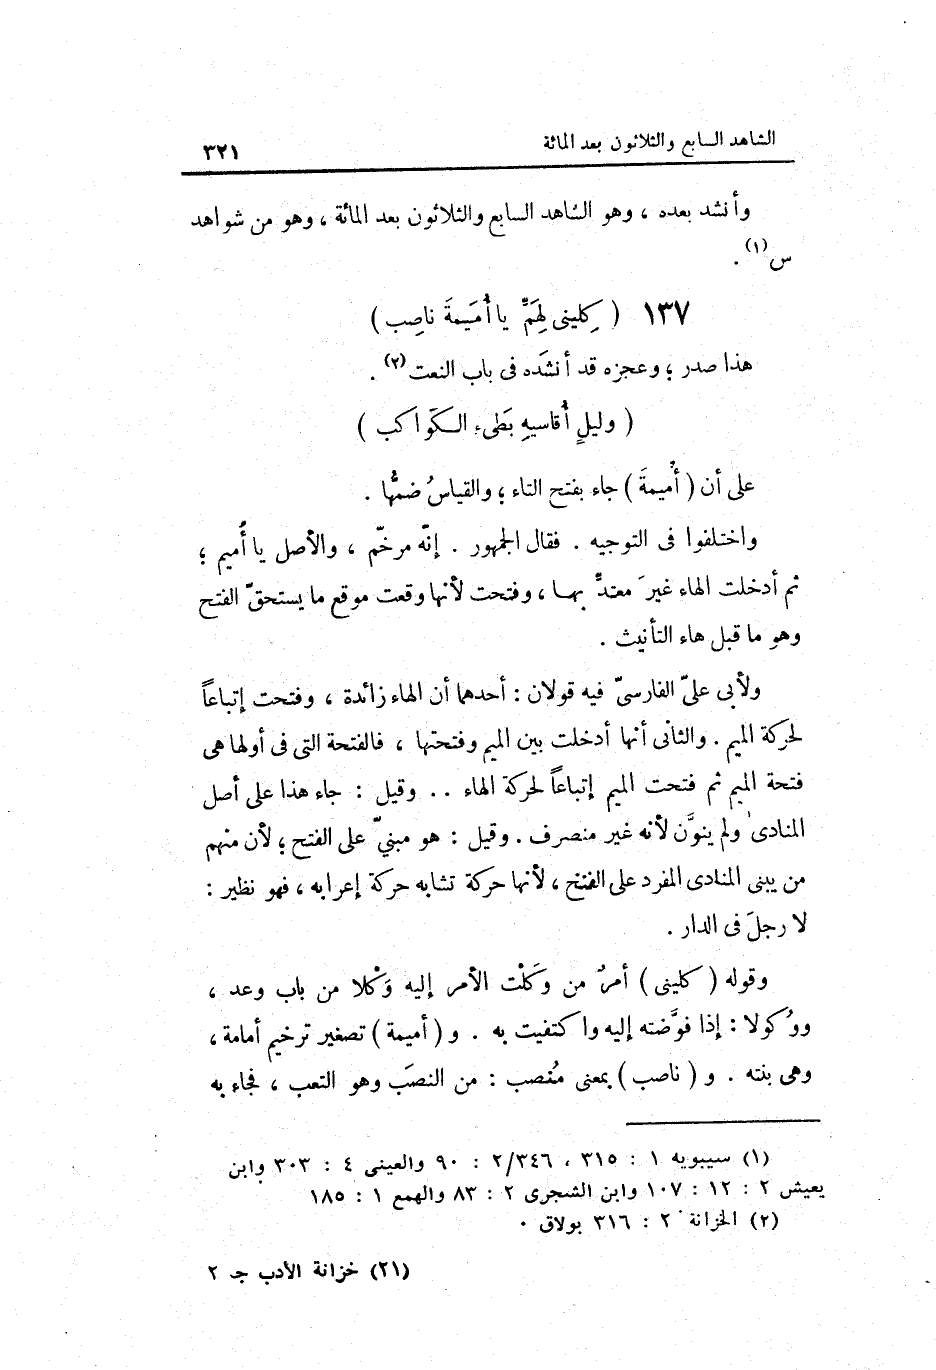 الشاهد السابع والثلاثون بعد المائة ٣٢١
وأنشد بعده ، وهو الشاهد السابع والثلاثون بعد المائة ، وهو من شواهد
س(١) .
١٣٧ ( كِلينى لِهَمٍّ يا أُمَيمةَ ناصِب )
هذا صدر ؛ وعجزه قد أنشَده فى باب النعت(٢) .
( وليلٍ أُقاسيهِ بَطىء الكَواكب )
على أن ( أُميمةَ ) جاء بفتح التاء ؛ والقياسُ ضمُّها .
واختلفوا فى التوجيه . فقال الجمهور . إنّه مرخّم ، والأصل يا أُميم ؛
ثم أدخلت الهاء غيرَ معتدٍّ بها ، وفتحت لأنها وقعت موقع ما يستحقّ الفتح
وهو ما قبل هاء التأنيث .
ولأبى علىّ الفارسىّ فيه قولان : أحدهما أن الهاء زائدة ، وفتحت إتباعاً
لحركة الميم . والثانى أنها أدخلت بين الميم وفتحتها ، فالفتحة التى فى أولها هى
فتحة الميم ثم فتحت الميم إتباعاً لحركة الهاء . . وقيل : جاء هذا على أصل
المنادى ولم ينوَّن لأنه غير منصرف . وقيل : هو مبنيّ على الفتح ؛ لأن منهم
من يبنى المنادى المفرد على الفتح ، لأنها حركة تشابه حركة إعرابه ، فهو نظير :
لا رجلَ فى الدار .
وقوله ( كلينى ) أمرٌ من وَكَلْت الأمر إليه وَكْلا من باب وعد ،
ووُكولا : إذا فوَّضته إليه واكتفيت به . و ( أميمة ) تصغير ترخيم أمامة ،
وهى بنته . و ( ناصب ) بمعنى مُنصب : من النصَب وهو التعب ، فجاء به
(١) سيبويه ١ : ٣١٥ ، ٢/٣٤٦ : ٩٠ والعينى ٤ : ٣٠٣ وابن
يعيش ٢ : ١٢ : ١٠٧ وابن الشجرى ٢ : ٨٣ والهمع ١ : ١٨٥
(٢) الخزانة ٢ : ٣١٦ بولاق .
(٢١) خزانة الأدب جـ ٢